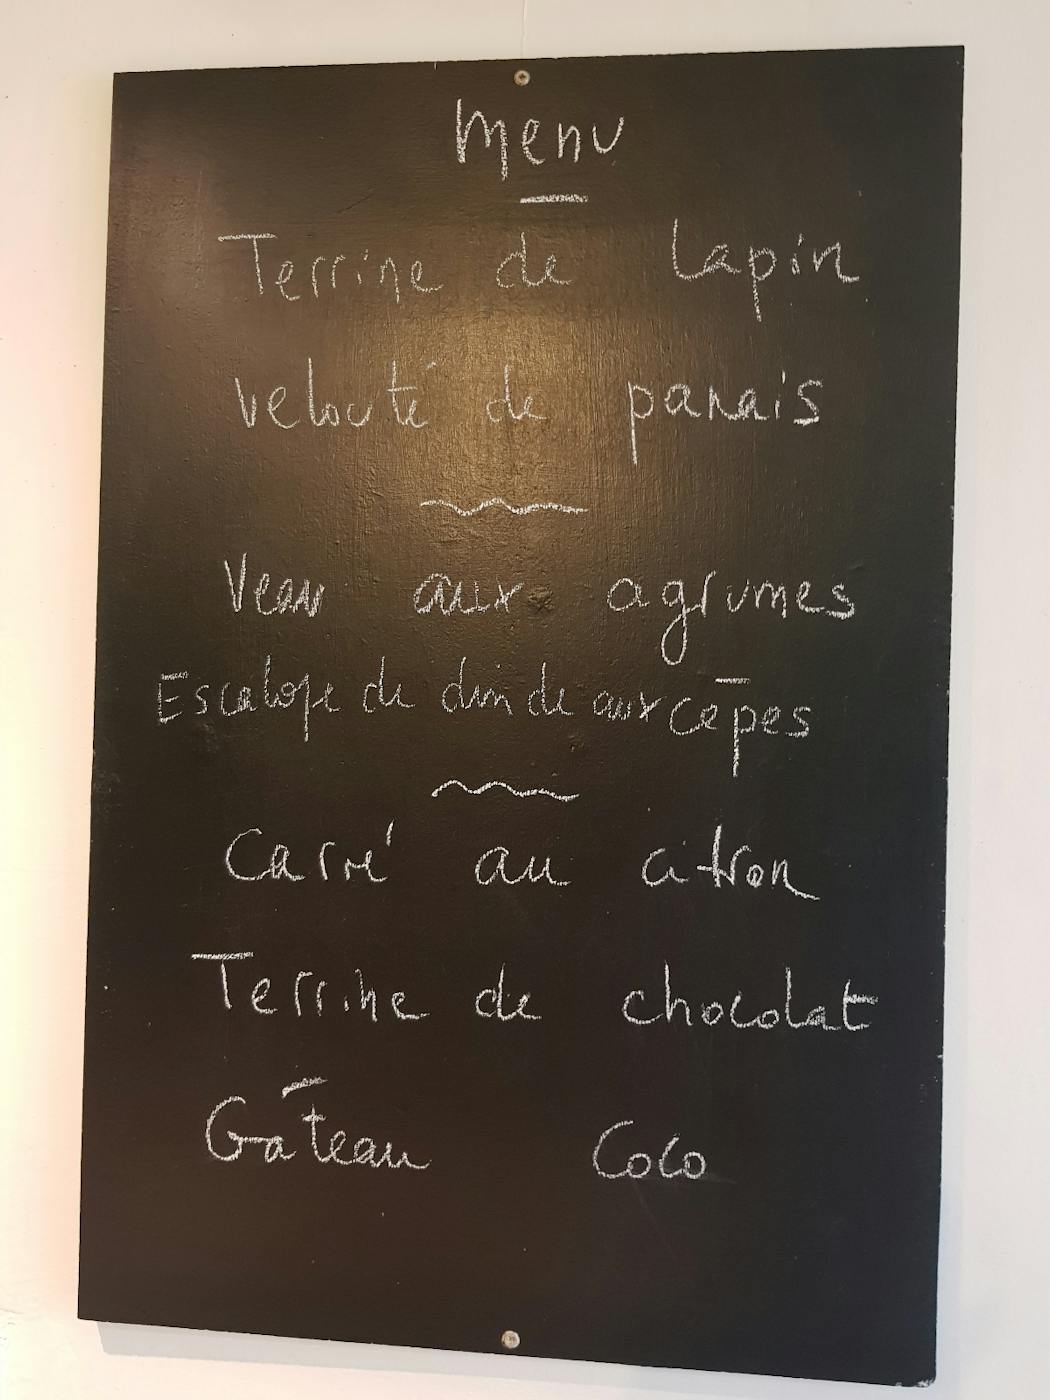 Menu
Terrine de lapin
Velouté de panais
Veau aux agrumes
Escalope de dinde aux cêpes
Carré au citron
Terrine de chocolat
Gâteau Coco